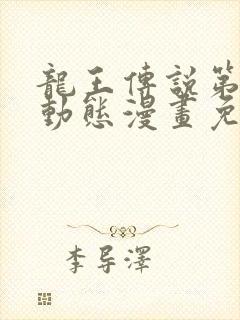 龍王傳說第
動態漫畫免
李导澤